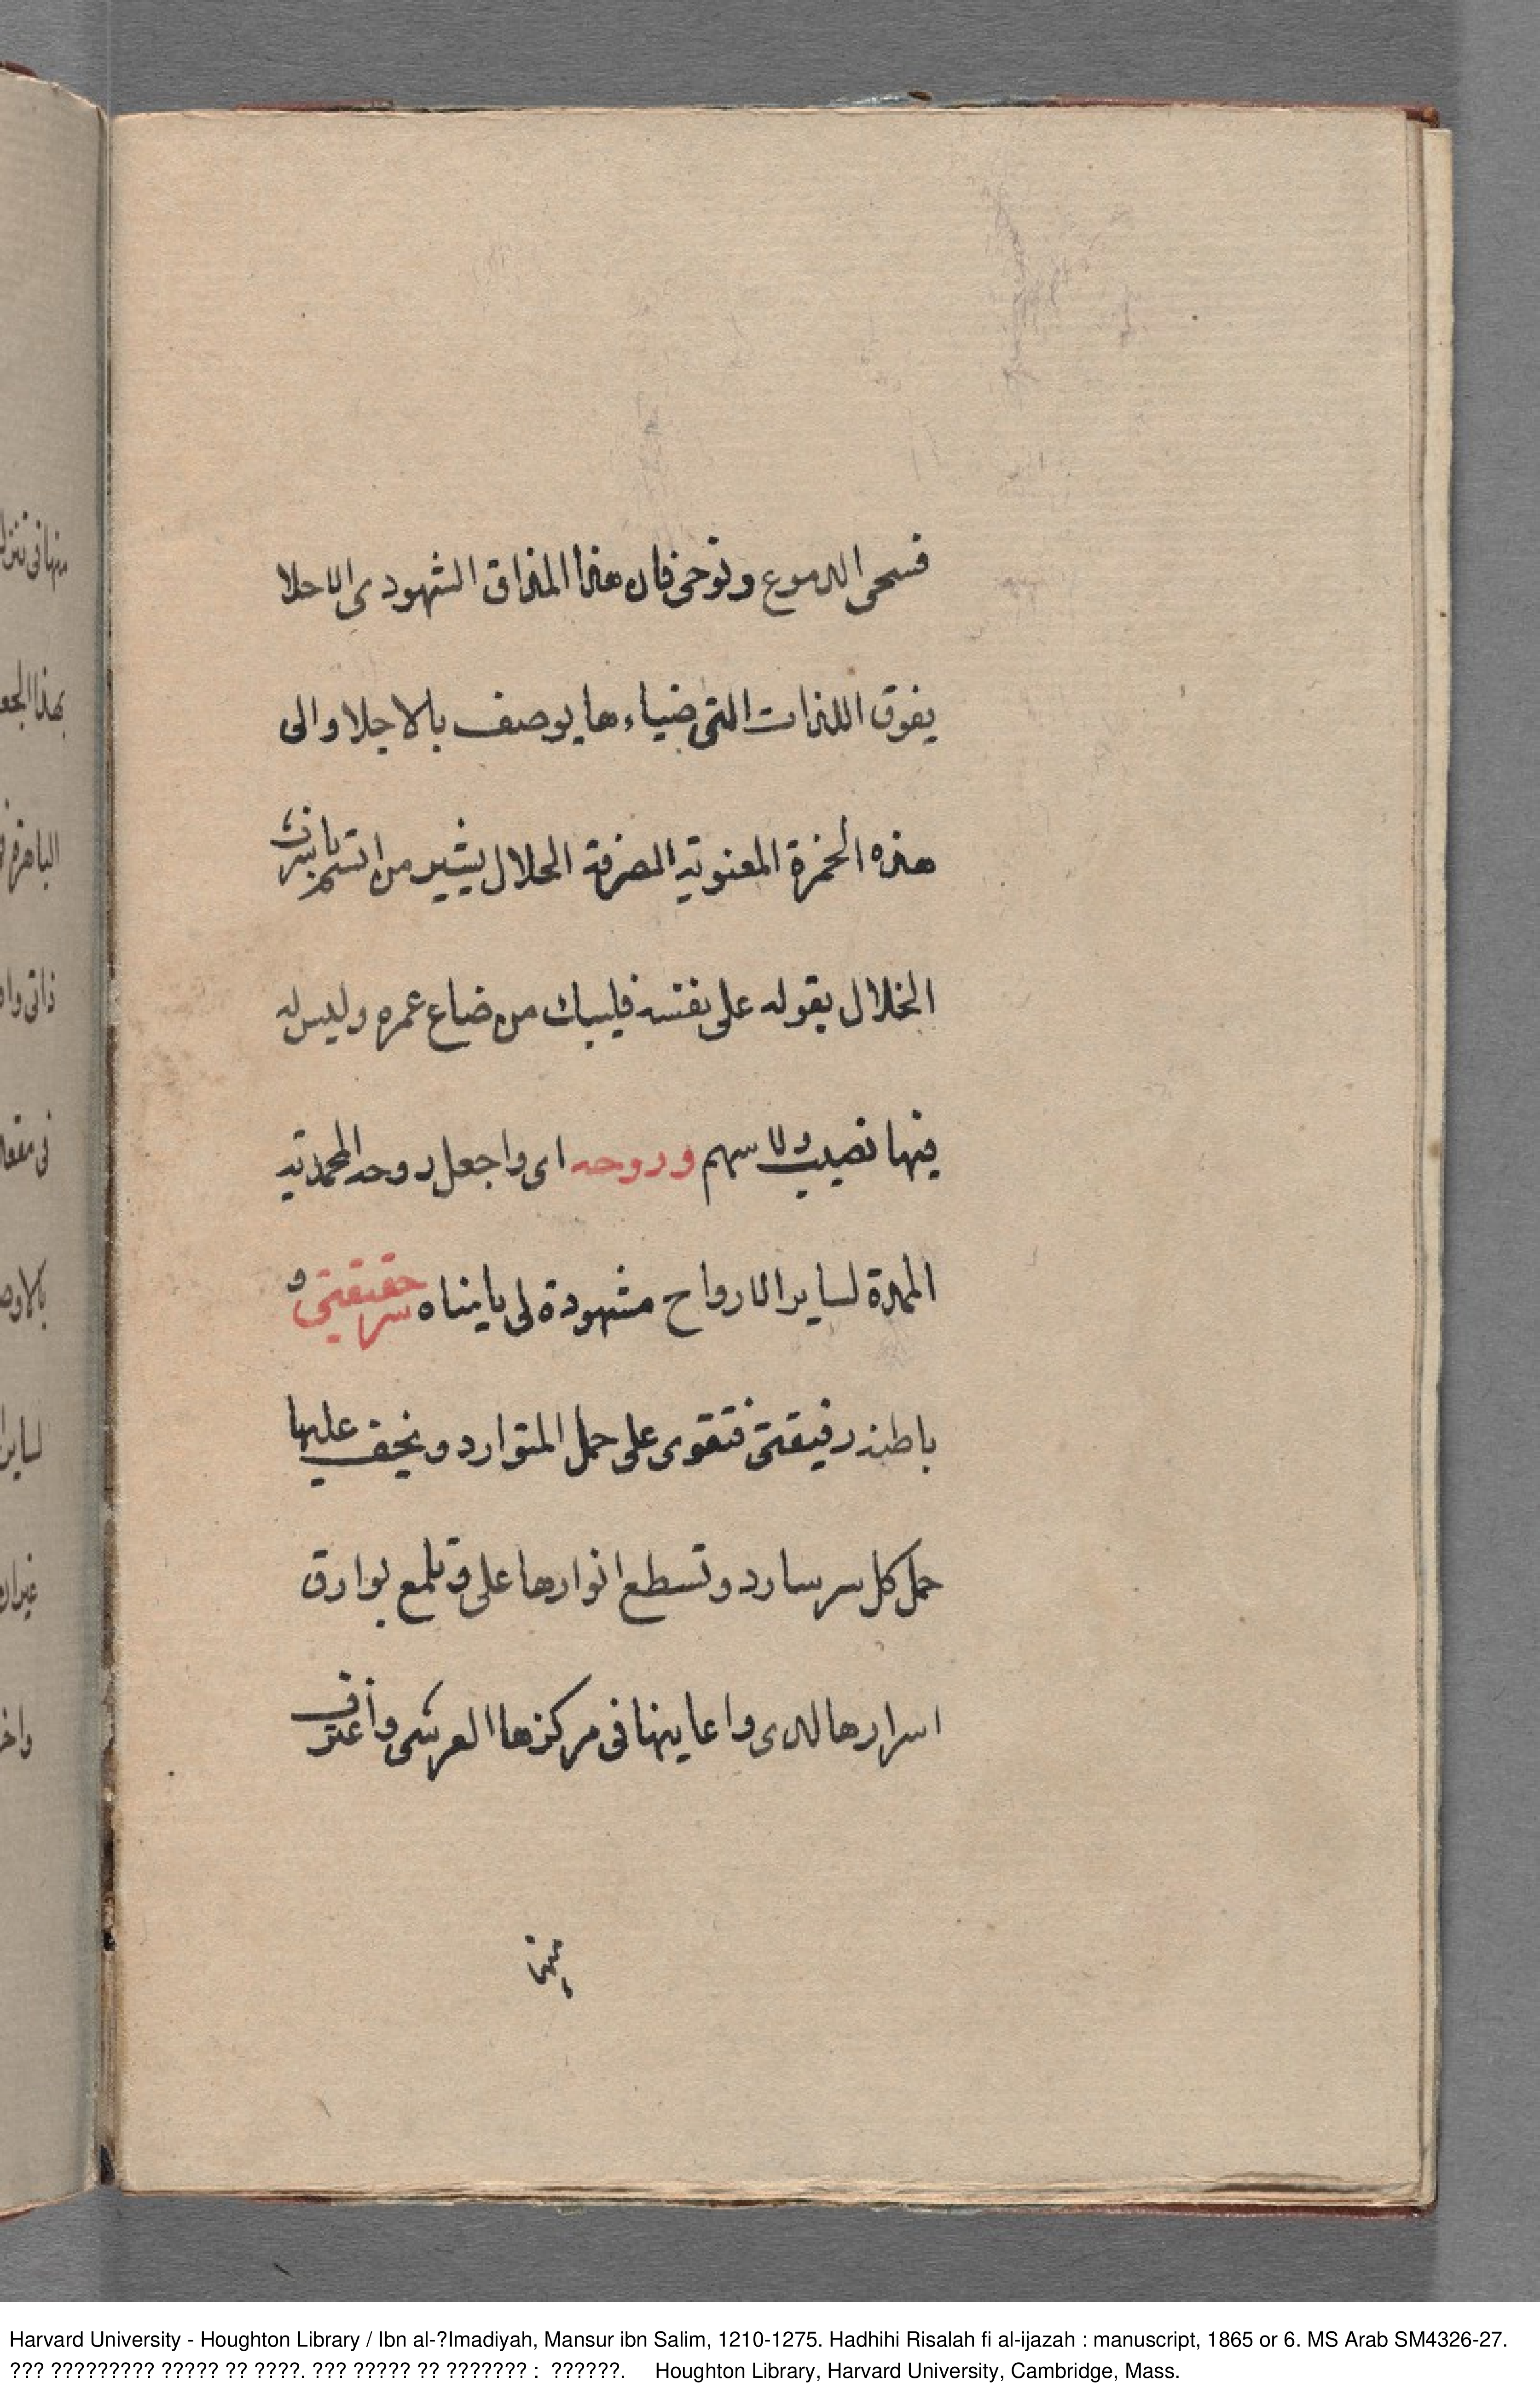 فسحى الدموع ونوحى فان هذا المذاق الشهودى الاحلا
يفوق اللذات التى ضياءها يوصف بالاجلا والى
هذه الخمرة المعنوية الصرفة الحلال يشير من اتسم باشرف
الخلال بقوله على نفسه فليبك من ضاع عمره وليس له
فيها نصيب ولا سهم وروحه اى واجعل روحه المحمدية
الممدة لساير الارواح مشهودة لى يا مناه سر حقيقتى و
باطنه رقيقتى فتقوى على حمل المتوارد ويخف عليها
حمل كل سر سارد وتسطع انوارها على وتلمع بوارق
اسرارها لدى واعاينها فى مركزها العرشى وأغترف
منها
منها فى تنزل
بهذا الجعل
الباهرة
ذاتى
فى مقعد
لساير
Harvard University - Houghton Library / Ibn al-?Imadiyah, Mansur ibn Salim, 1210-1275. Hadhihi Risalah fi al-ijazah : manuscript, 1865 or 6. MS Arab SM4326-27.
??? ????????? ????? ?? ????. ??? ????? ?? ??????? : ??????. Houghton Library, Harvard University, Cambridge, Mass.